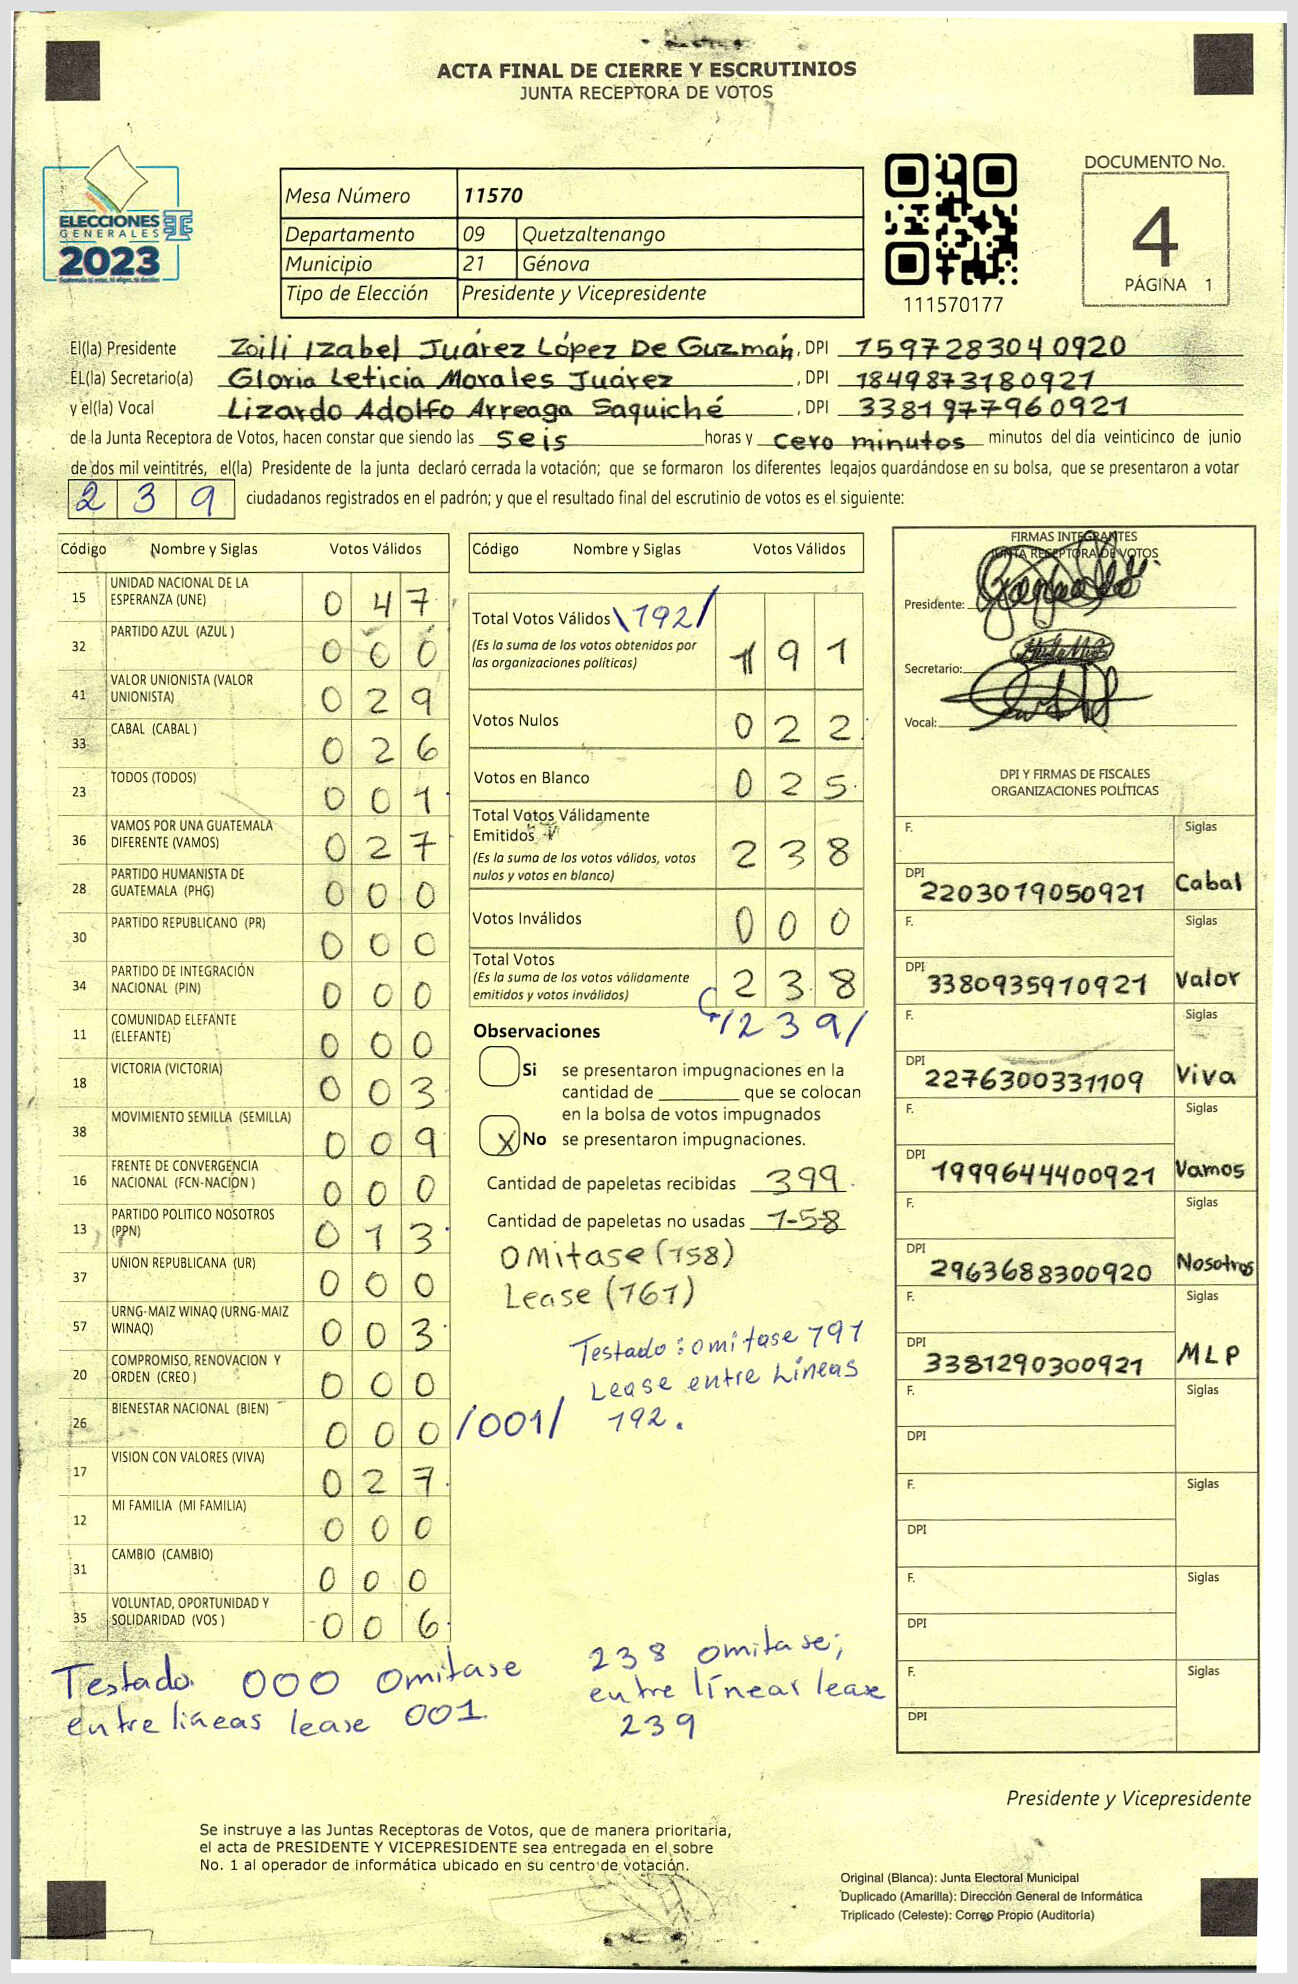 ACTA FINAL DE CIERRE Y ESCRUTINIOS
JUNTA RECEPTORA DE VOTOS
ELECCIONES
GENERALES
2023
Mesa Número 11570
Departamento 09 Quetzaltenango
Municipio 21 Génova
Tipo de Elección Presidente y Vicepresidente
111570177
DOCUMENTO No.
4
PÁGINA 1
El(la) Presidente Zoili Izabel Juárez López De Guzmán, DPI 1597283040920
EL(la) Secretario(a) Gloria Leticia Morales Juárez, DPI 1849873180921
y el(la) Vocal Lizardo Adolfo Arreaga Saquiché, DPI 3381977960921
de la Junta Receptora de Votos, hacen constar que siendo las seis horas y cero minutos minutos del día veinticinco de junio
de dos mil veintitrés, el(la) Presidente de la junta declaró cerrada la votación; que se formaron los diferentes legajos guardándose en su bolsa, que se presentaron a votar
239 ciudadanos registrados en el padrón; y que el resultado final del escrutinio de votos es el siguiente:
Código Nombre y Siglas Votos Válidos
15 UNIDAD NACIONAL DE LA ESPERANZA (UNE) 0 4 7
32 PARTIDO AZUL (AZUL ) 0 0 0
41 VALOR UNIONISTA (VALOR UNIONISTA) 0 2 9
33 CABAL (CABAL ) 0 2 6
23 TODOS (TODOS) 0 0 1
36 VAMOS POR UNA GUATEMALA DIFERENTE (VAMOS) 0 2 7
28 PARTIDO HUMANISTA DE GUATEMALA (PHG) 0 0 0
30 PARTIDO REPUBLICANO (PR) 0 0 0
34 PARTIDO DE INTEGRACIÓN NACIONAL (PIN) 0 0 0
11 COMUNIDAD ELEFANTE (ELEFANTE) 0 0 0
18 VICTORIA (VICTORIA) 0 0 3
38 MOVIMIENTO SEMILLA (SEMILLA) 0 0 9
16 FRENTE DE CONVERGENCIA NACIONAL (FCN-NACION ) 0 0 0
13 PARTIDO POLITICO NOSOTROS (PPN) 0 1 3
37 UNION REPUBLICANA (UR) 0 0 0
57 URNG-MAIZ WINAQ (URNG-MAIZ WINAQ) 0 0 3
20 COMPROMISO, RENOVACION Y ORDEN (CREO ) 0 0 0
26 BIENESTAR NACIONAL (BIEN) 0 0 0 /001/
17 VISION CON VALORES (VIVA) 0 2 7
12 MI FAMILIA (MI FAMILIA) 0 0 0
31 CAMBIO (CAMBIO) 0 0 0
35 VOLUNTAD, OPORTUNIDAD Y SOLIDARIDAD (VOS ) 0 0 6
Testado. 000 omitase
entre lineas lease 001.
Código Nombre y Siglas Votos Válidos
Total Votos Válidos \192/
(Es la suma de los votos obtenidos por
las organizaciones políticas) 1 9 1
Votos Nulos 0 2 2
Votos en Blanco 0 2 5
Total Votos Válidamente
Emitidos
(Es la suma de los votos válidos, votos
nulos y votos en blanco) 2 3 8
Votos Inválidos 0 0 0
Total Votos
(Es la suma de los votos válidamente
emitidos y votos inválidos) 2 3 8
/239/
Observaciones
Si se presentaron impugnaciones en la
cantidad de ________ que se colocan
en la bolsa de votos impugnados
X No se presentaron impugnaciones.
Cantidad de papeletas recibidas 399
Cantidad de papeletas no usadas 158
Omitase (158)
Lease (161)
Testado: omitase 191
Lease entre Líneas
192.
238 omitase;
entre línear lease
239
FIRMAS INTEGRANTES
JUNTA RECEPTORA DE VOTOS
Presidente:
Secretario:
Vocal:
DPI Y FIRMAS DE FISCALES
ORGANIZACIONES POLÍTICAS
F. Siglas
DPI 2203019050921 Cabal
F. Siglas
DPI 3380935910921 Valor
F. Siglas
DPI 2276300331109 Viva
F. Siglas
DPI 1999644400921 Vamos
F. Siglas
DPI 2963688300920 Nosotros
F. Siglas
DPI 3381290300921 MLP
F. Siglas
DPI
F. Siglas
DPI
F. Siglas
DPI
F. Siglas
DPI
Presidente y Vicepresidente
Se instruye a las Juntas Receptoras de Votos, que de manera prioritaria,
el acta de PRESIDENTE Y VICEPRESIDENTE sea entregada en el sobre
No. 1 al operador de informática ubicado en su centro de votación.
Original (Blanca): Junta Electoral Municipal
Duplicado (Amarilla): Dirección General de Informática
Triplicado (Celeste): Correo Propio (Auditoría)